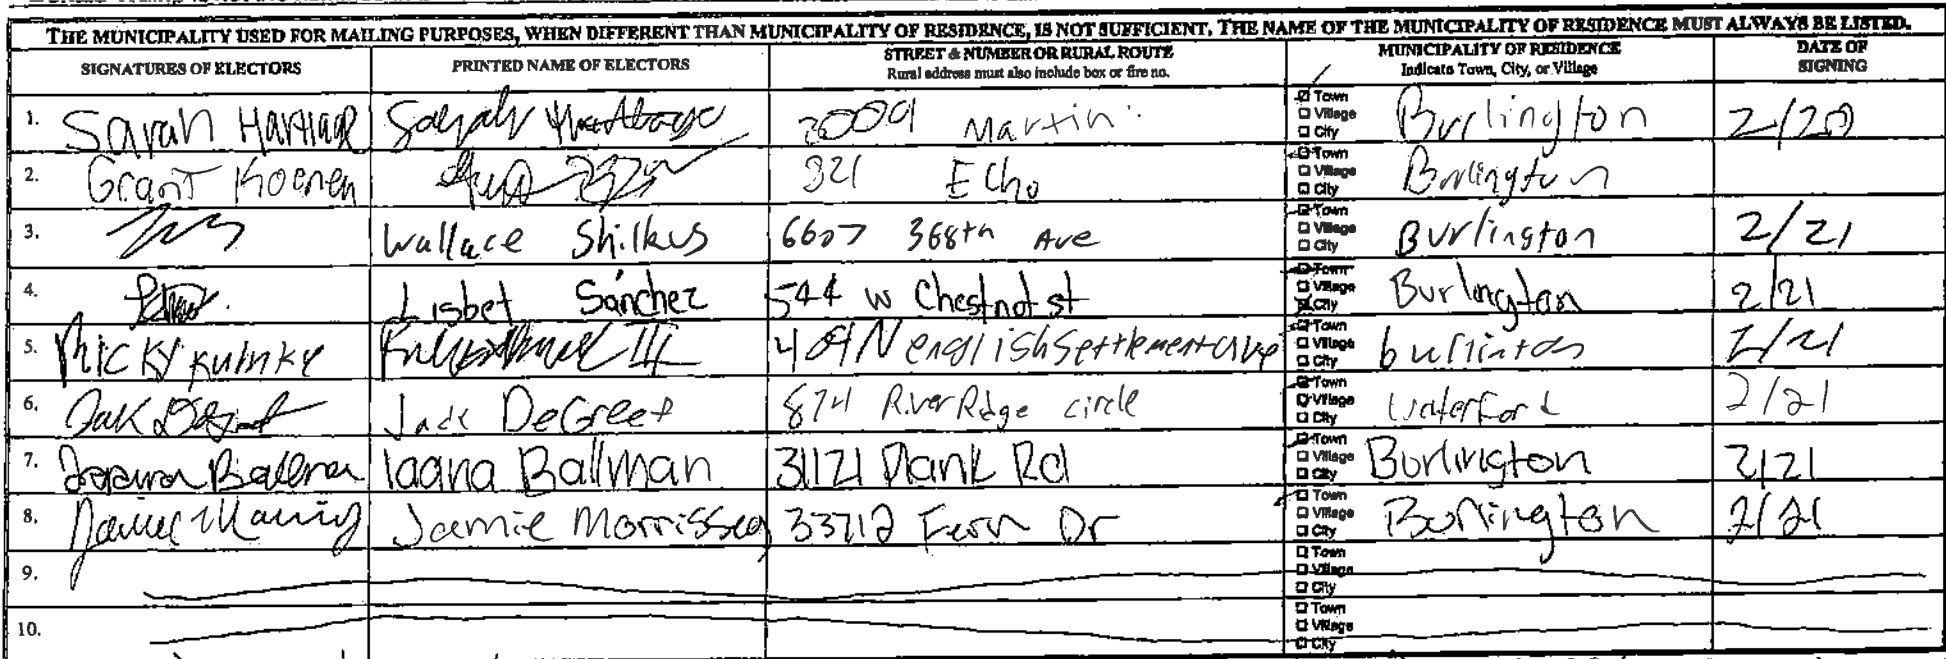 THE MUNICIPALITY USED FOR MAILING PURPOSES, WHEN DIFFERENT THAN MUNICIPALITY OF RESIDENCE, IS NOT SUFFICIENT. THE NAME OF THE MUNICIPALITY OF RESIDENCE MUST ALWAYS BE LISTED.
SIGNATURES OF ELECTORS
PRINTED NAME OF ELECTORS
STREET & NUMBER OR RURAL ROUTE
Rural address must also include box or fire no.
MUNICIPALITY OF RESIDENCE
Indicate Town, City, or Village
DATE OF
SIGNING
1. Sarah Sarah 2009 Martin
Town
Village
City
Burlington 2/20
2. Grant Koenen 321 Echo
Town
Village
City
Burlington
3. Wallace Shilkus 6607 368th Ave
Town
Village
City
Burlington 2/21
4. Lisbet Sánchez 544 W Chestnot st
Town
Village
City
Burlington 2/21
5. Micky 409 N english Settlement ave
Town
Village
City
2/21
6. Jack DeGreef 874 River Ridge circle
Town
Village
City
Waterford 2/21
7. Ballman 31121 Plank Rd
Town
Village
City
Burlington 2/21
8. Jamie Morrissey 33712 Fern Dr
Town
Village
City
Burlington 2/21
9.
Town
Village
City
10.
Town
Village
City